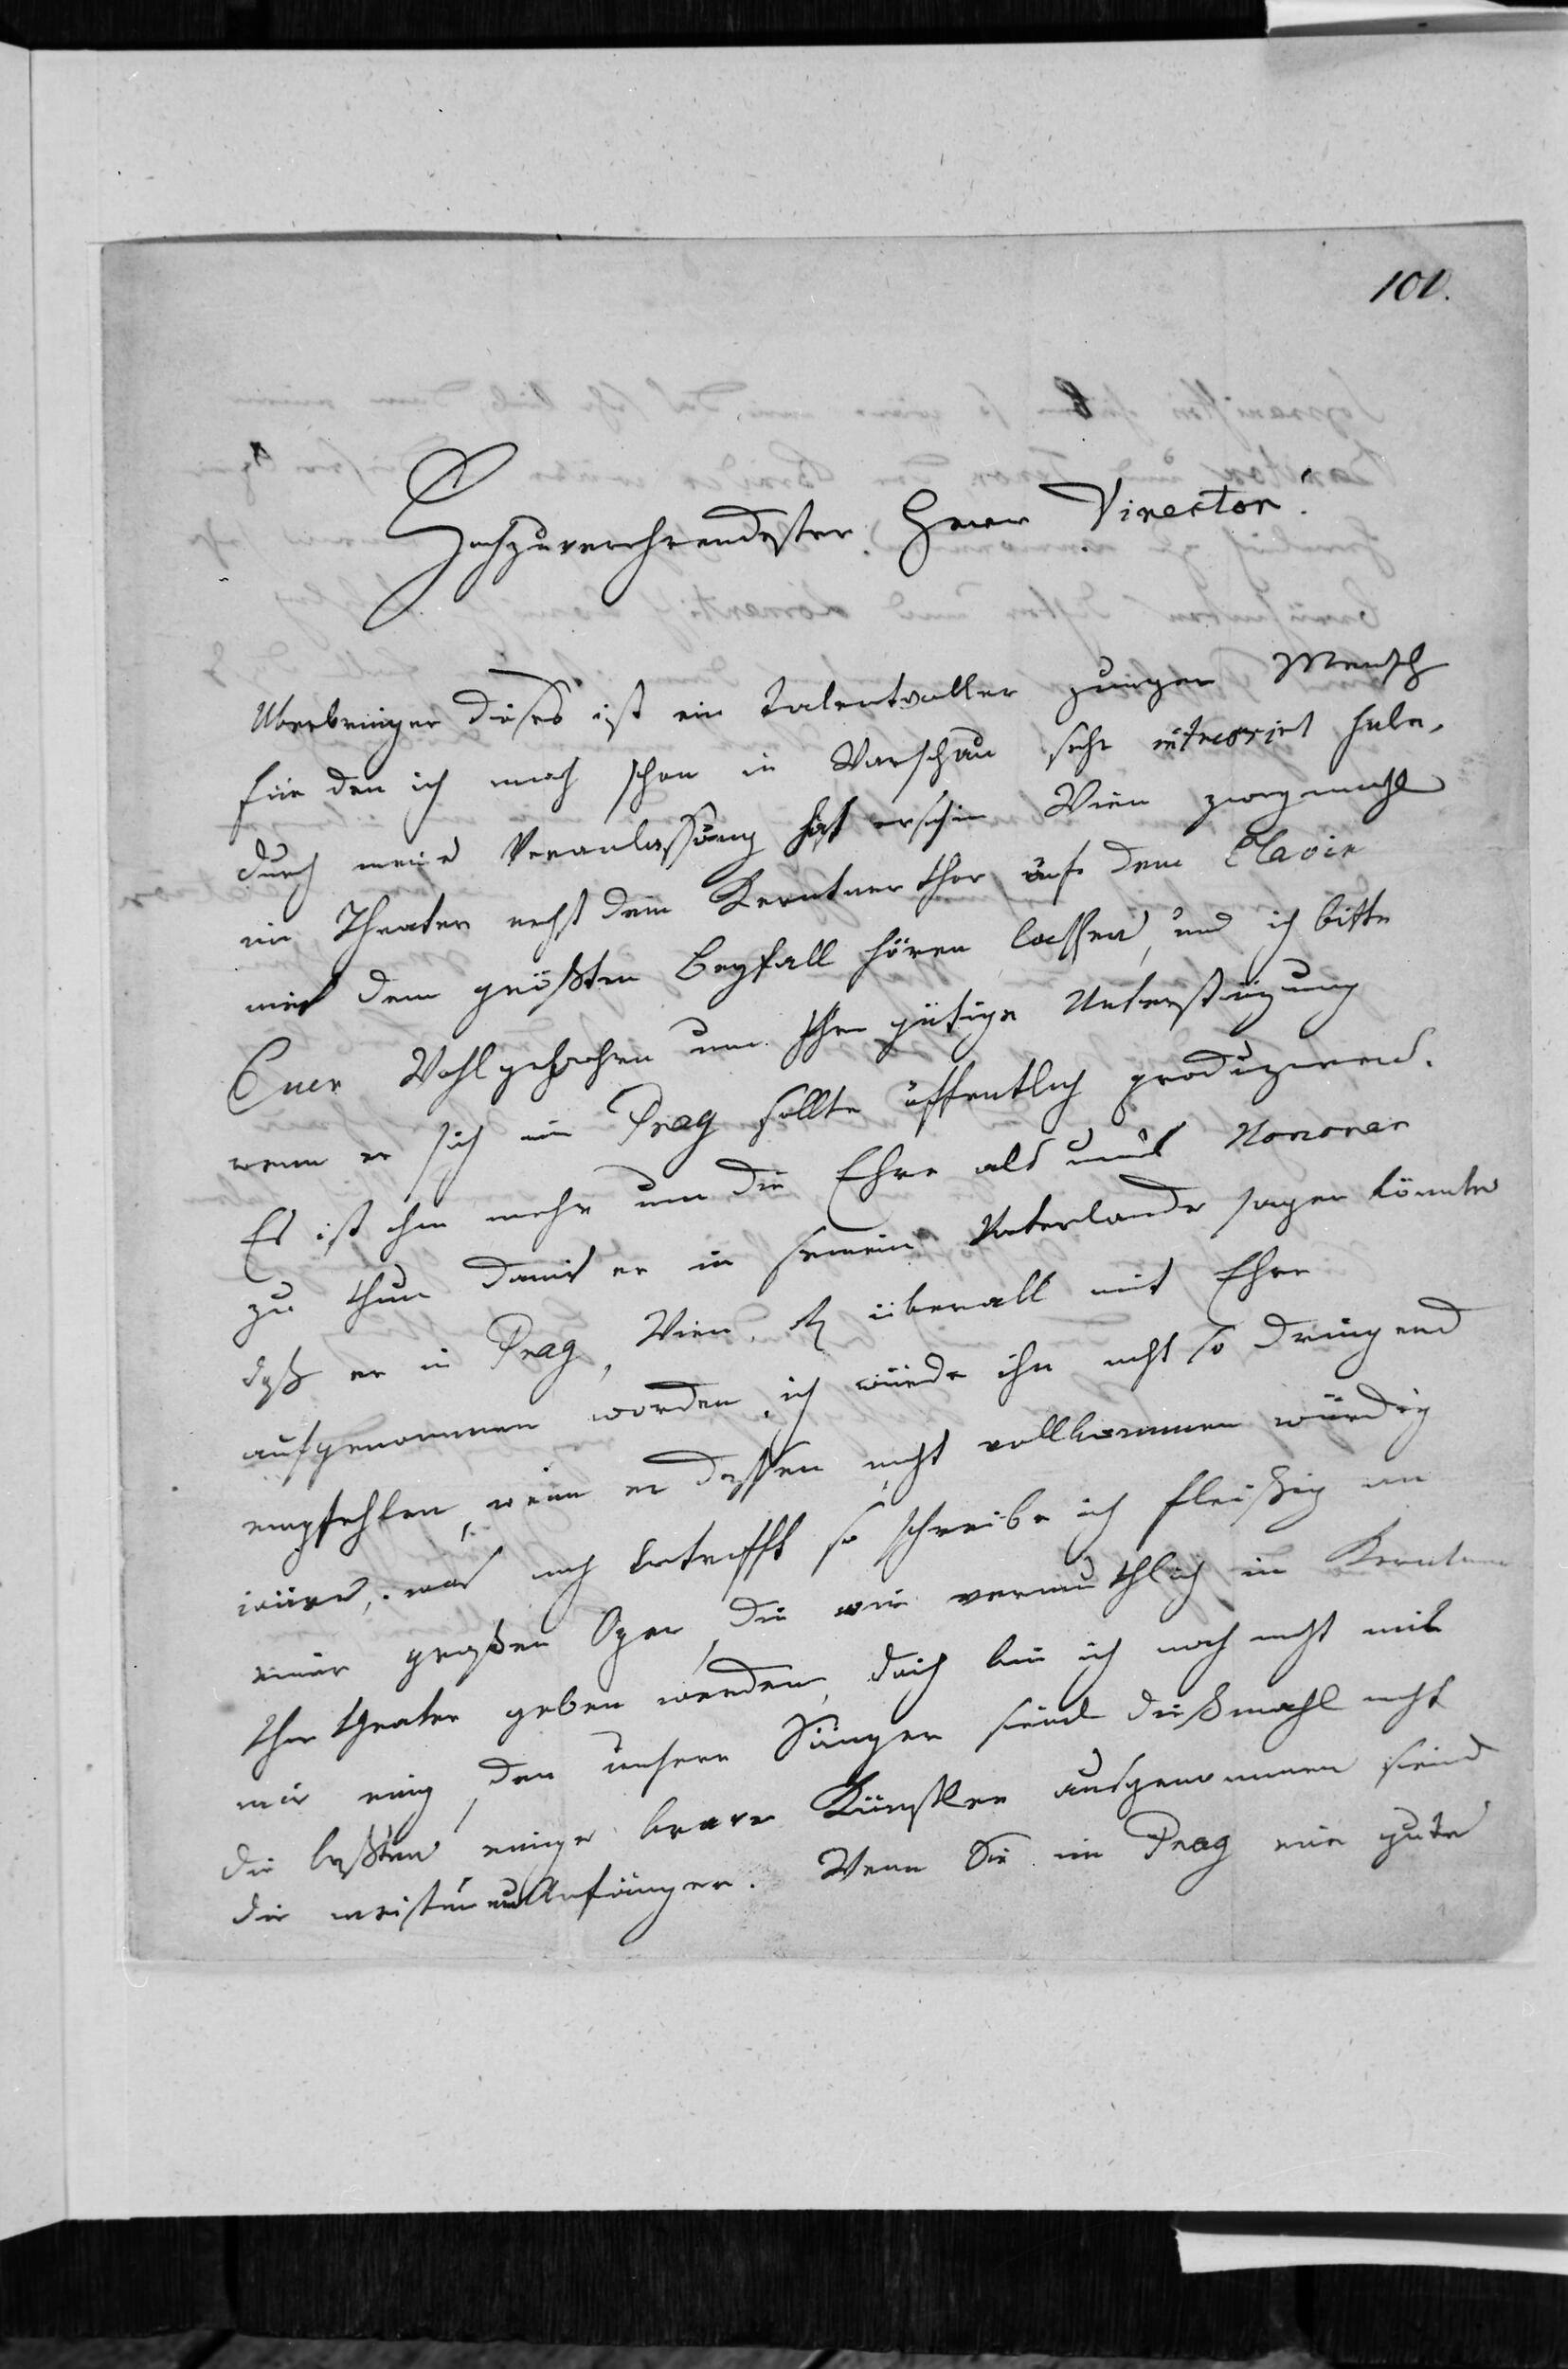 101.
Hochzuverehrendster Herr Director!
Uberbringer dieses ist ein talentvoller junger Mensch
für den ich mich schon in Warschau sehr intressiret habe,
durch meine Veranlassung hat er sich in Wien zweymahl
im Theater nechst dem Kerntner thor auf dem Clavir
mit dem größten Beyfall hören lassen, und ich bitte
Euer Wohlgebohren um Ihre gütige Unterstüzung
wenn er sich in Prag sollte öffentlich produziren.
Es ist ihm mehr um die Ehre als ums Honorar
zu thun damit er in seinem Vaterlande sagen könnte
daß er in Prag, Wien, überall mit Ehre
aufgenommen worden, ich würde ihn nicht so dringend
empfehlen, wenn er dessen nicht vollkommen würdig
wäre, was mich betrifft so schreibe ich fleißig an
einer großen Oper, die wir vermuthlich in Kerntner
Thor theater geben werden, doch bin ich noch nicht mit
mir einig, den unsere Sänger sind dießmahl nicht
die besten, einige brave Künstler ausgenommen sind
die meisten nur Anfänger. Wenn Sie in Prag eine gute